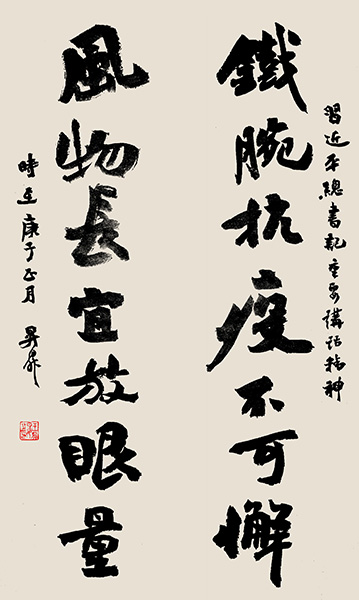 習近平總書記重要講話精神
鐵腕抗疫不可懈
風物長宜放眼量
時在庚子正月